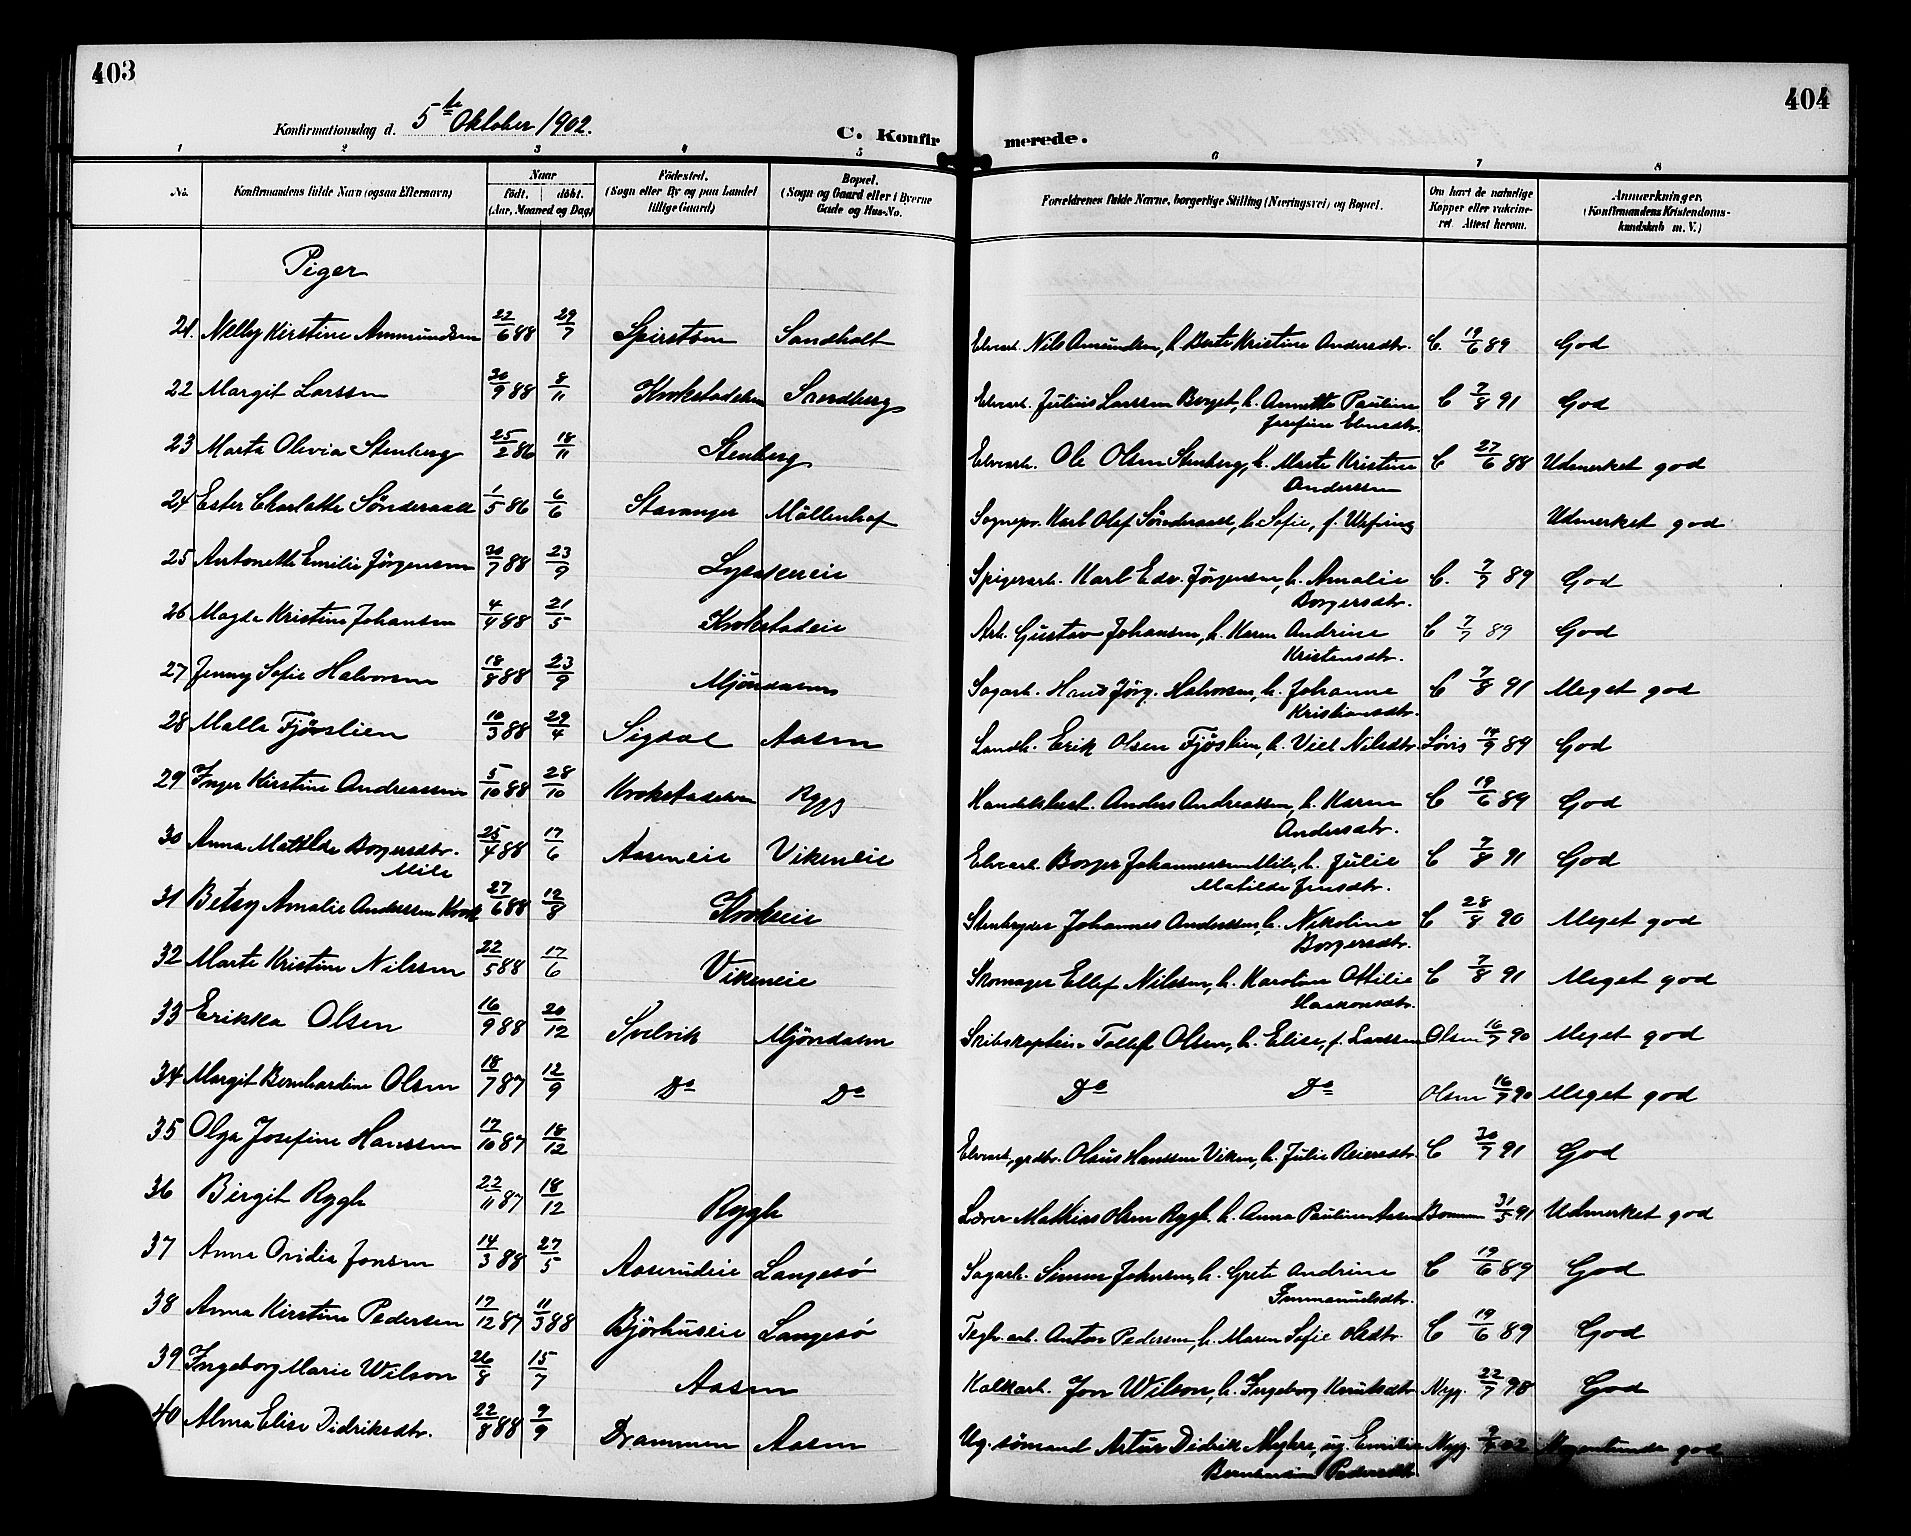 403
404
Konfirmationsdag d. 5te Oktober 1902.
C. Konfir
merede.
1 2 3 4 5 6 7 8
No.
Konfirmandens fulde Navn (ogsaa Efternavn)
Naar
födt. döbt.
(Aar, Maaned og Dag)
Födested.
(Sogn eller By og paa Landet
tillige Gaard)
Bopæl.
(Sogn og Gaard eller i Byerne
Gade og Hus-No.
Forældrenes fulde Navne, borgerlige Stilling (Næringsvei) og Bopæl.
Om havt de naturlige
Kopper eller vakcine-
ret. Attest herom.
Anmærkninger.
(Konfirmandens Kristendoms-
kundskab m. V.)
Piger
21. Nelly Kirstine Ammundsen 22/6 88 29/7 Spirstøen Sandholt Elvearb. Nils Amundsen, h. Berte Kristine Andersdtr. C. 19/6 89 God
22 Margit Larssen 30/9 88 8/11 Krokstadelven Sandberg Elvearb. Julius Larssen Borget, h. Annette Pauline C 7/8 91 God
Josefine
23 Marta Olivia Stenberg 25/2 86 18/11 Stenberg Elvearb. Ole Olsen Stenberg, h. Marte Kristine C 27/6 88 Udmerket god
Anderssen
24 Ester Charlotte Sönderaal 1/5 86 6/6 Stavanger Möllenhof Sognepr. Karl Olef Sönderaal, h. Sofie, f. Udmerket god
25 Antonette Emilie Jörgensen 30/7 88 23/9 Spigerarb. Karl Edv. Jörgensen, h. Amalie C. 7/7 89 God
Borgersdtr.
26 Magda Kristine Johansen 4/4 88 21/5 Krokstadeie Arb. Gustav Johansen, h. Karen Andrine C 7/7 89 God
Kristensdtr.
27 Jenny Sofie Halvorsen 18/8 88 23/9 Mjöndalen Sagarb. Hans Jörg. Halvorsen, h. Johanne C 7/8 91 Meget god
Kristiansdtr.
28 Malla Fjöslien 10/3 88 29/4 Sigdal Aasen Landh. Erik Olsen Fjöslien, h. Viel Nilsdtr. 14/9 89 God
29 Inger Kirstine Andreassen 5/10 88 28/10 Krokstadelven Rygg Handelsbest. Anders Andreassen, h. Karen C 19/6 89 God
Andersdtr.
30 Anna Matilde Borgersdtr. 25/4 88 17/6 Aaseneie Vikeneie Elvearb. Borger Johannessen Mile, h. Julie C 7/8 91 God
Mile
Matilde Jensdtr.
31 Betsy Amalie Anderssen Krok 27/6 88 12/8 Krokeie Stenbryder Johannes Anderssen, h. Nikoline C 28/8 90 Meget god
Borgersdtr.
32 Marte Kristine Nilssen 22/5 88 17/6 Vikeneie Skomager Ellef Nilssen, h. Karoline Ottilie C 7/8 91 Meget god
Haakonsdtr.
33 Erikka Olsen 16/9 88 20/12 Svelvik Mjöndalen Skibskaptein Tollef Olsen, h. Elise, f. Larssen Olsen 16/7 90 Meget god
34 Margit Bernhardine Olsen 18/7 87 12/9 Do Do Do Do Olsen 16/7 90 Meget god
35 Olga Josefine Hanssen 17/10 87 18/12 Elvearb. grdbr. Olaus Hanssen Viken, h. Julie Reiersdtr. C 30/7 91 God
36 Birgit Rygh 22/11 87 18/12 Rygh Lærer Mathias Olsen Rygh, h. Anna Pauline Aasen 31/5 91 Udmerket god
37 Anna Ovidia Jonsen 14/3 88 27/5 Aaserudeie Langesö Sagarb. Simen Johnsen, h. Grete Andrine C 19/6 89 God
Immanuelsdtr.
38 Anna Kirstine Pedersen 17/12 87 11/3 88 Björhuseie Langesö Teglv. arb. Anton Pedersen, h. Maren Sofie Olsdtr. C 19/6 89 God
39 Ingeborg Marie Wilson 26/8 15/7 Aasen Kalkarb. Jon Wilson, h. Ingeborg Knutsdtr. Myg. 22/7 98 God
40 Alma Elise Didriksdtr. 22/8 88 9/9 Drammen Aasen Ug. sömand Artur Didrik Myhre, ug. Emilie Myg. 02 god
Pedersdtr.